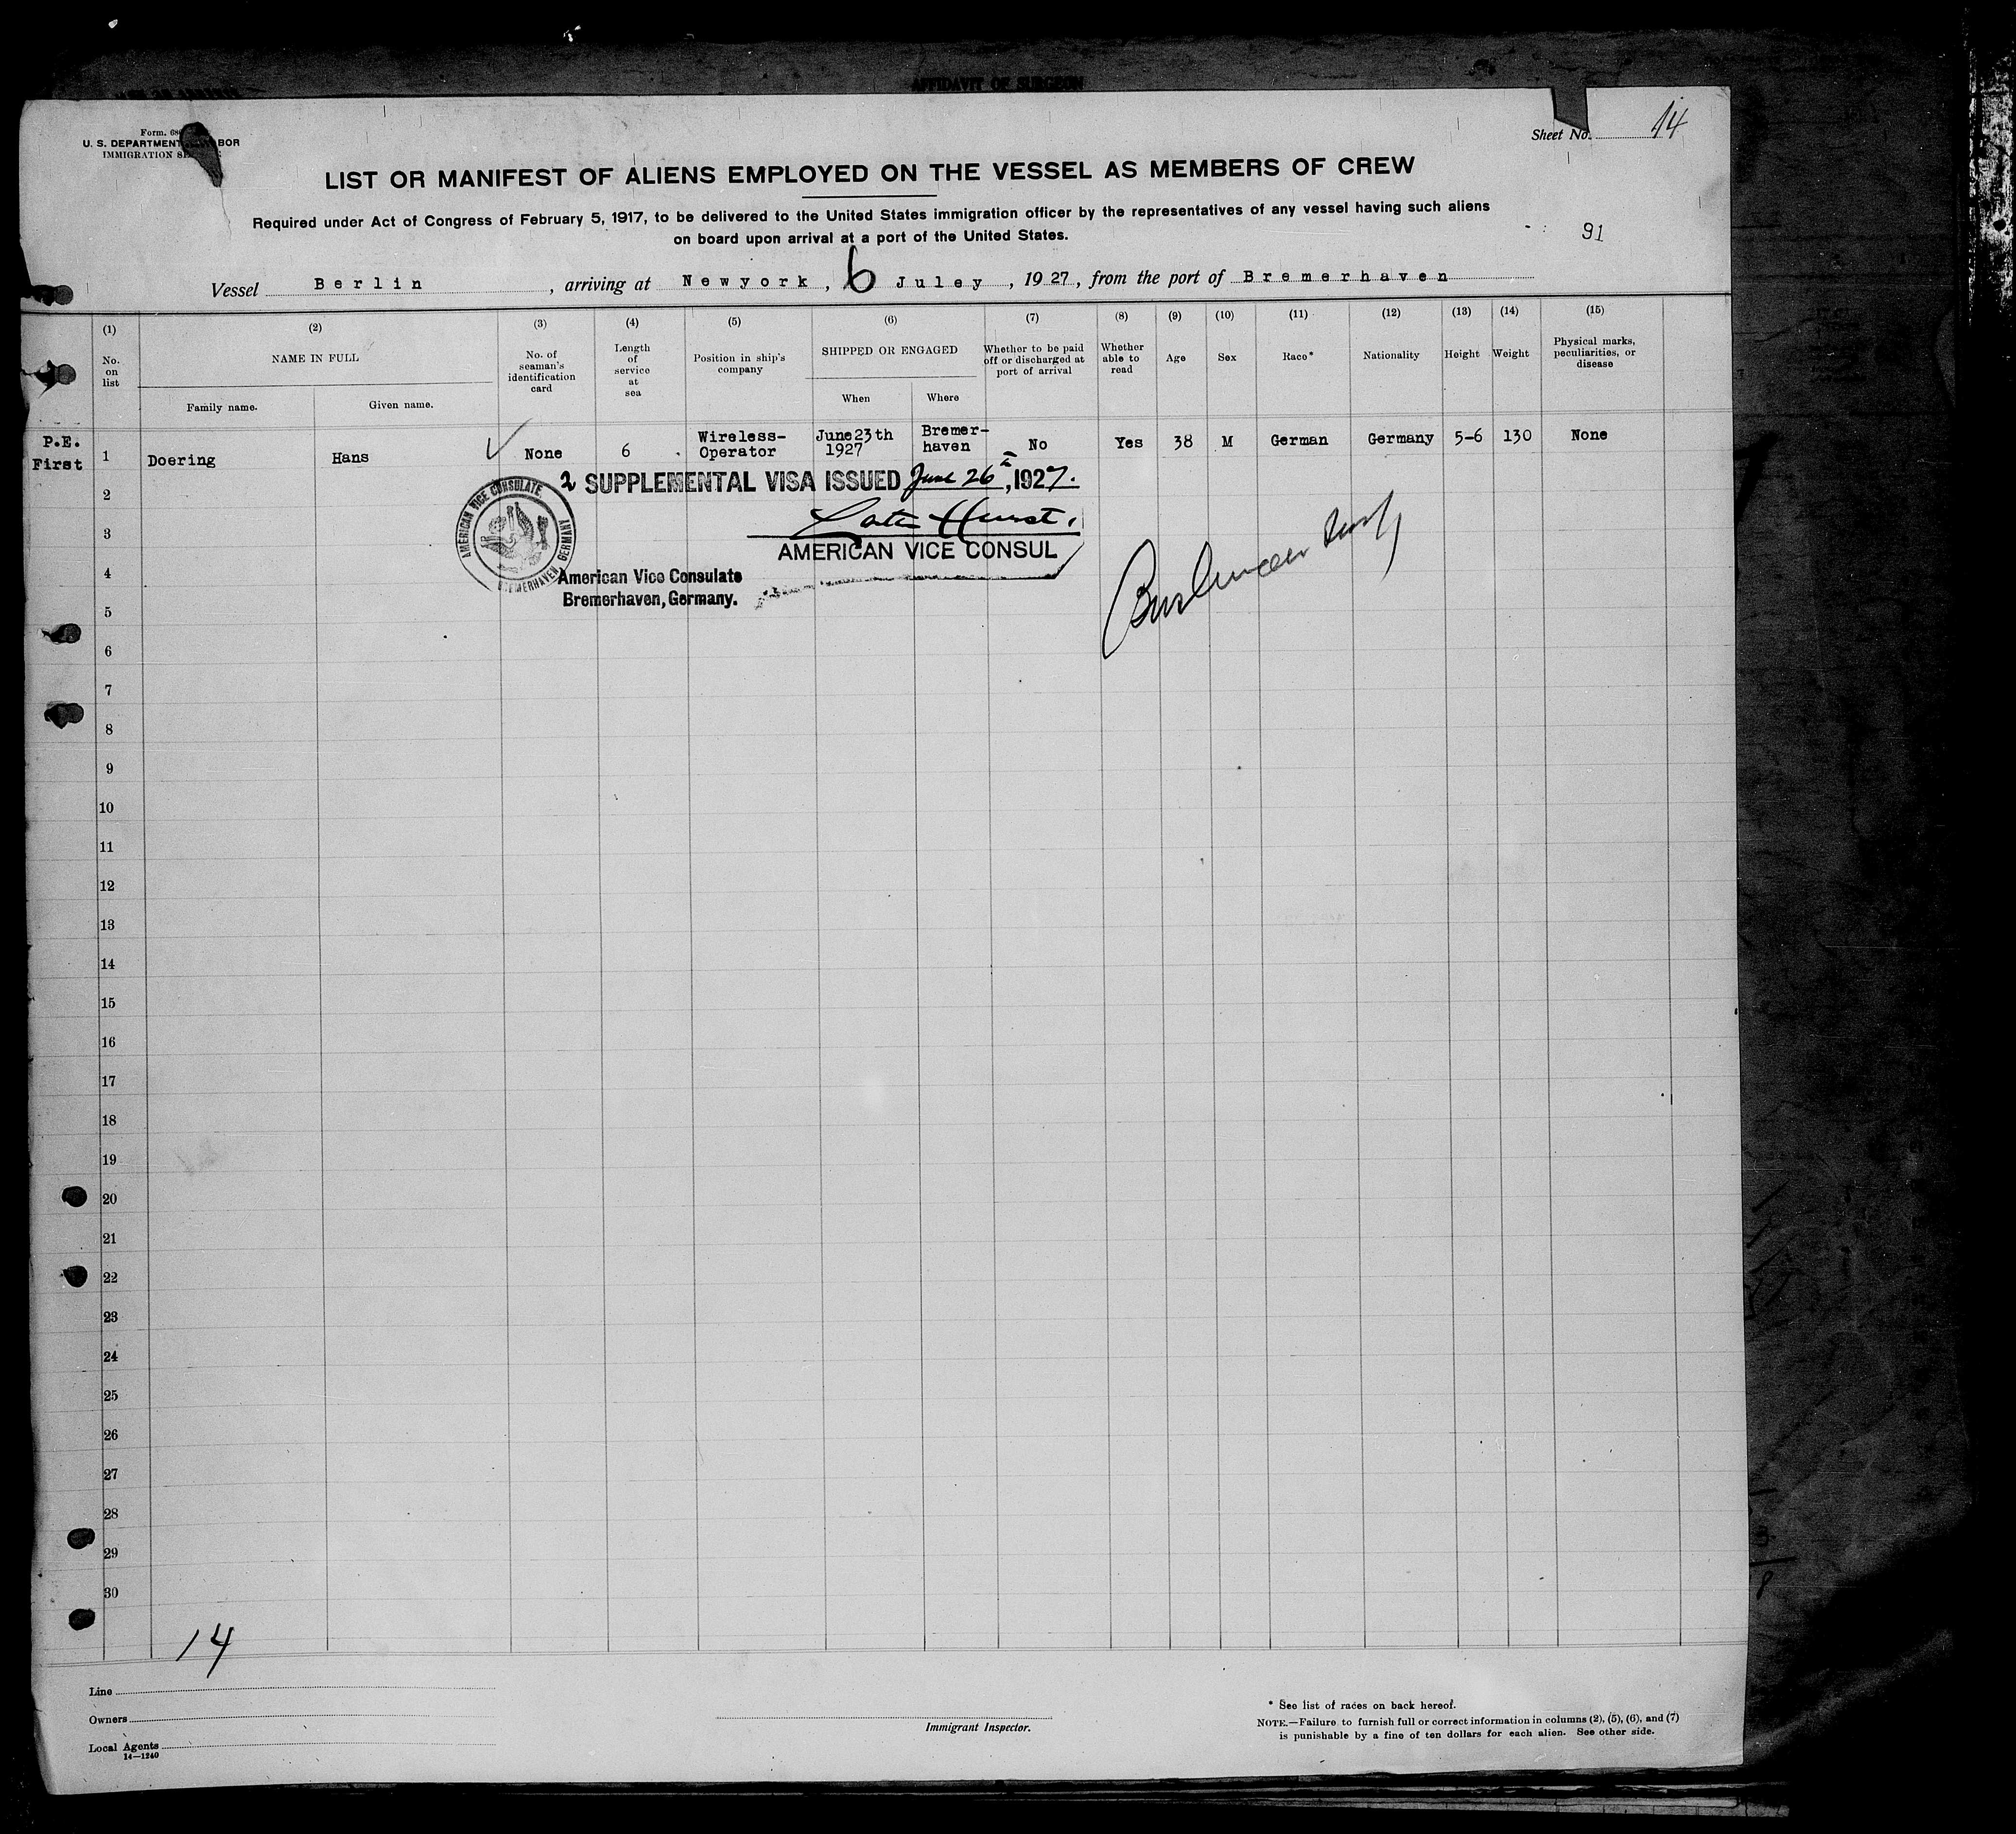 AFFIDAVIT OF SURGEON
Form.
U. S. DEPARTMENT BOR
IMMIGRATION
Sheet No. 14
LIST OR MANIFEST OF ALIENS EMPLOYED ON THE VESSEL AS MEMBERS OF CREW
Required under Act of Congress of February 5, 1917, to be delivered to the United States immigration officer by the representatives of any vessel having such aliens
on board upon arrival at a port of the United States.
91
Vessel Berlin, arriving at Newyork, 6 Juley, 1927, from the port of Bremerhaven
(1) (2) (3) (4) (5) (6) (7) (8) (9) (10) (11) (12) (13) (14) (15)
No. on list
NAME IN FULL
Family name. Given name.
No. of seaman's identification card
Length of service at sea
Position in ship's company
SHIPPED OR ENGAGED
When Where
Whether to be paid off or discharged at port of arrival
Whether able to read
Age
Sex
Race*
Nationality
Height
Weight
Physical marks, peculiarities, or disease
P.E.
First 1 Doering Hans None 6 Wireless-Operator June 23th 1927 Bremer-haven No Yes 38 M German Germany 5-6 130 None
2 SUPPLEMENTAL VISA ISSUED June 26th, 1927.
AMERICAN VICE CONSUL
AMERICAN VICE CONSULATE
BREMERHAVEN GERMANY
American Vice Consulate
Bremerhaven, Germany.
2
3
4
5
6
7
8
9
10
11
12
13
14
15
16
17
18
19
20
21
22
23
24
25
26
27
28
29
30
14
Line
Owners
Local Agents
14—1240
Immigrant Inspector.
* See list of races on back hereof.
NOTE.—Failure to furnish full or correct information in columns (2), (5), (6), and (7)
is punishable by a fine of ten dollars for each alien. See other side.